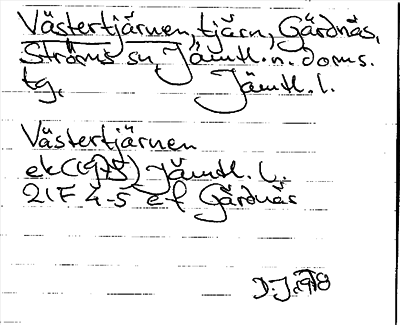 Västertjärnen, tjärn, Gärdnäs,
Ströms sn, Jämtl. n. doms.
tg, Jämtl. l.
Västertjärnen
ek (1975) Jämtl. l.
21F 4-5 ef Gärdnäs
D.J. 1978